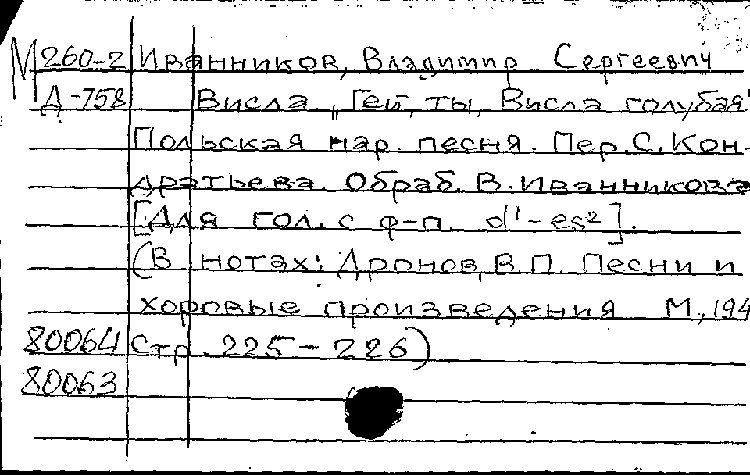 М 260-2 Иванников, Владимир Сергеевич
Д-758 Висла „Гей, ты, Висла голубая"
Польская нар. песня. Пер. С. Кон-
дратьева. Обраб. В. Иванникова
[Для гол. с ф-п. d¹-es²].
(В нотах: Дронов, В.П. Песни и
хоровые произведения М., 194
80064 Стр. 225-226)
80063